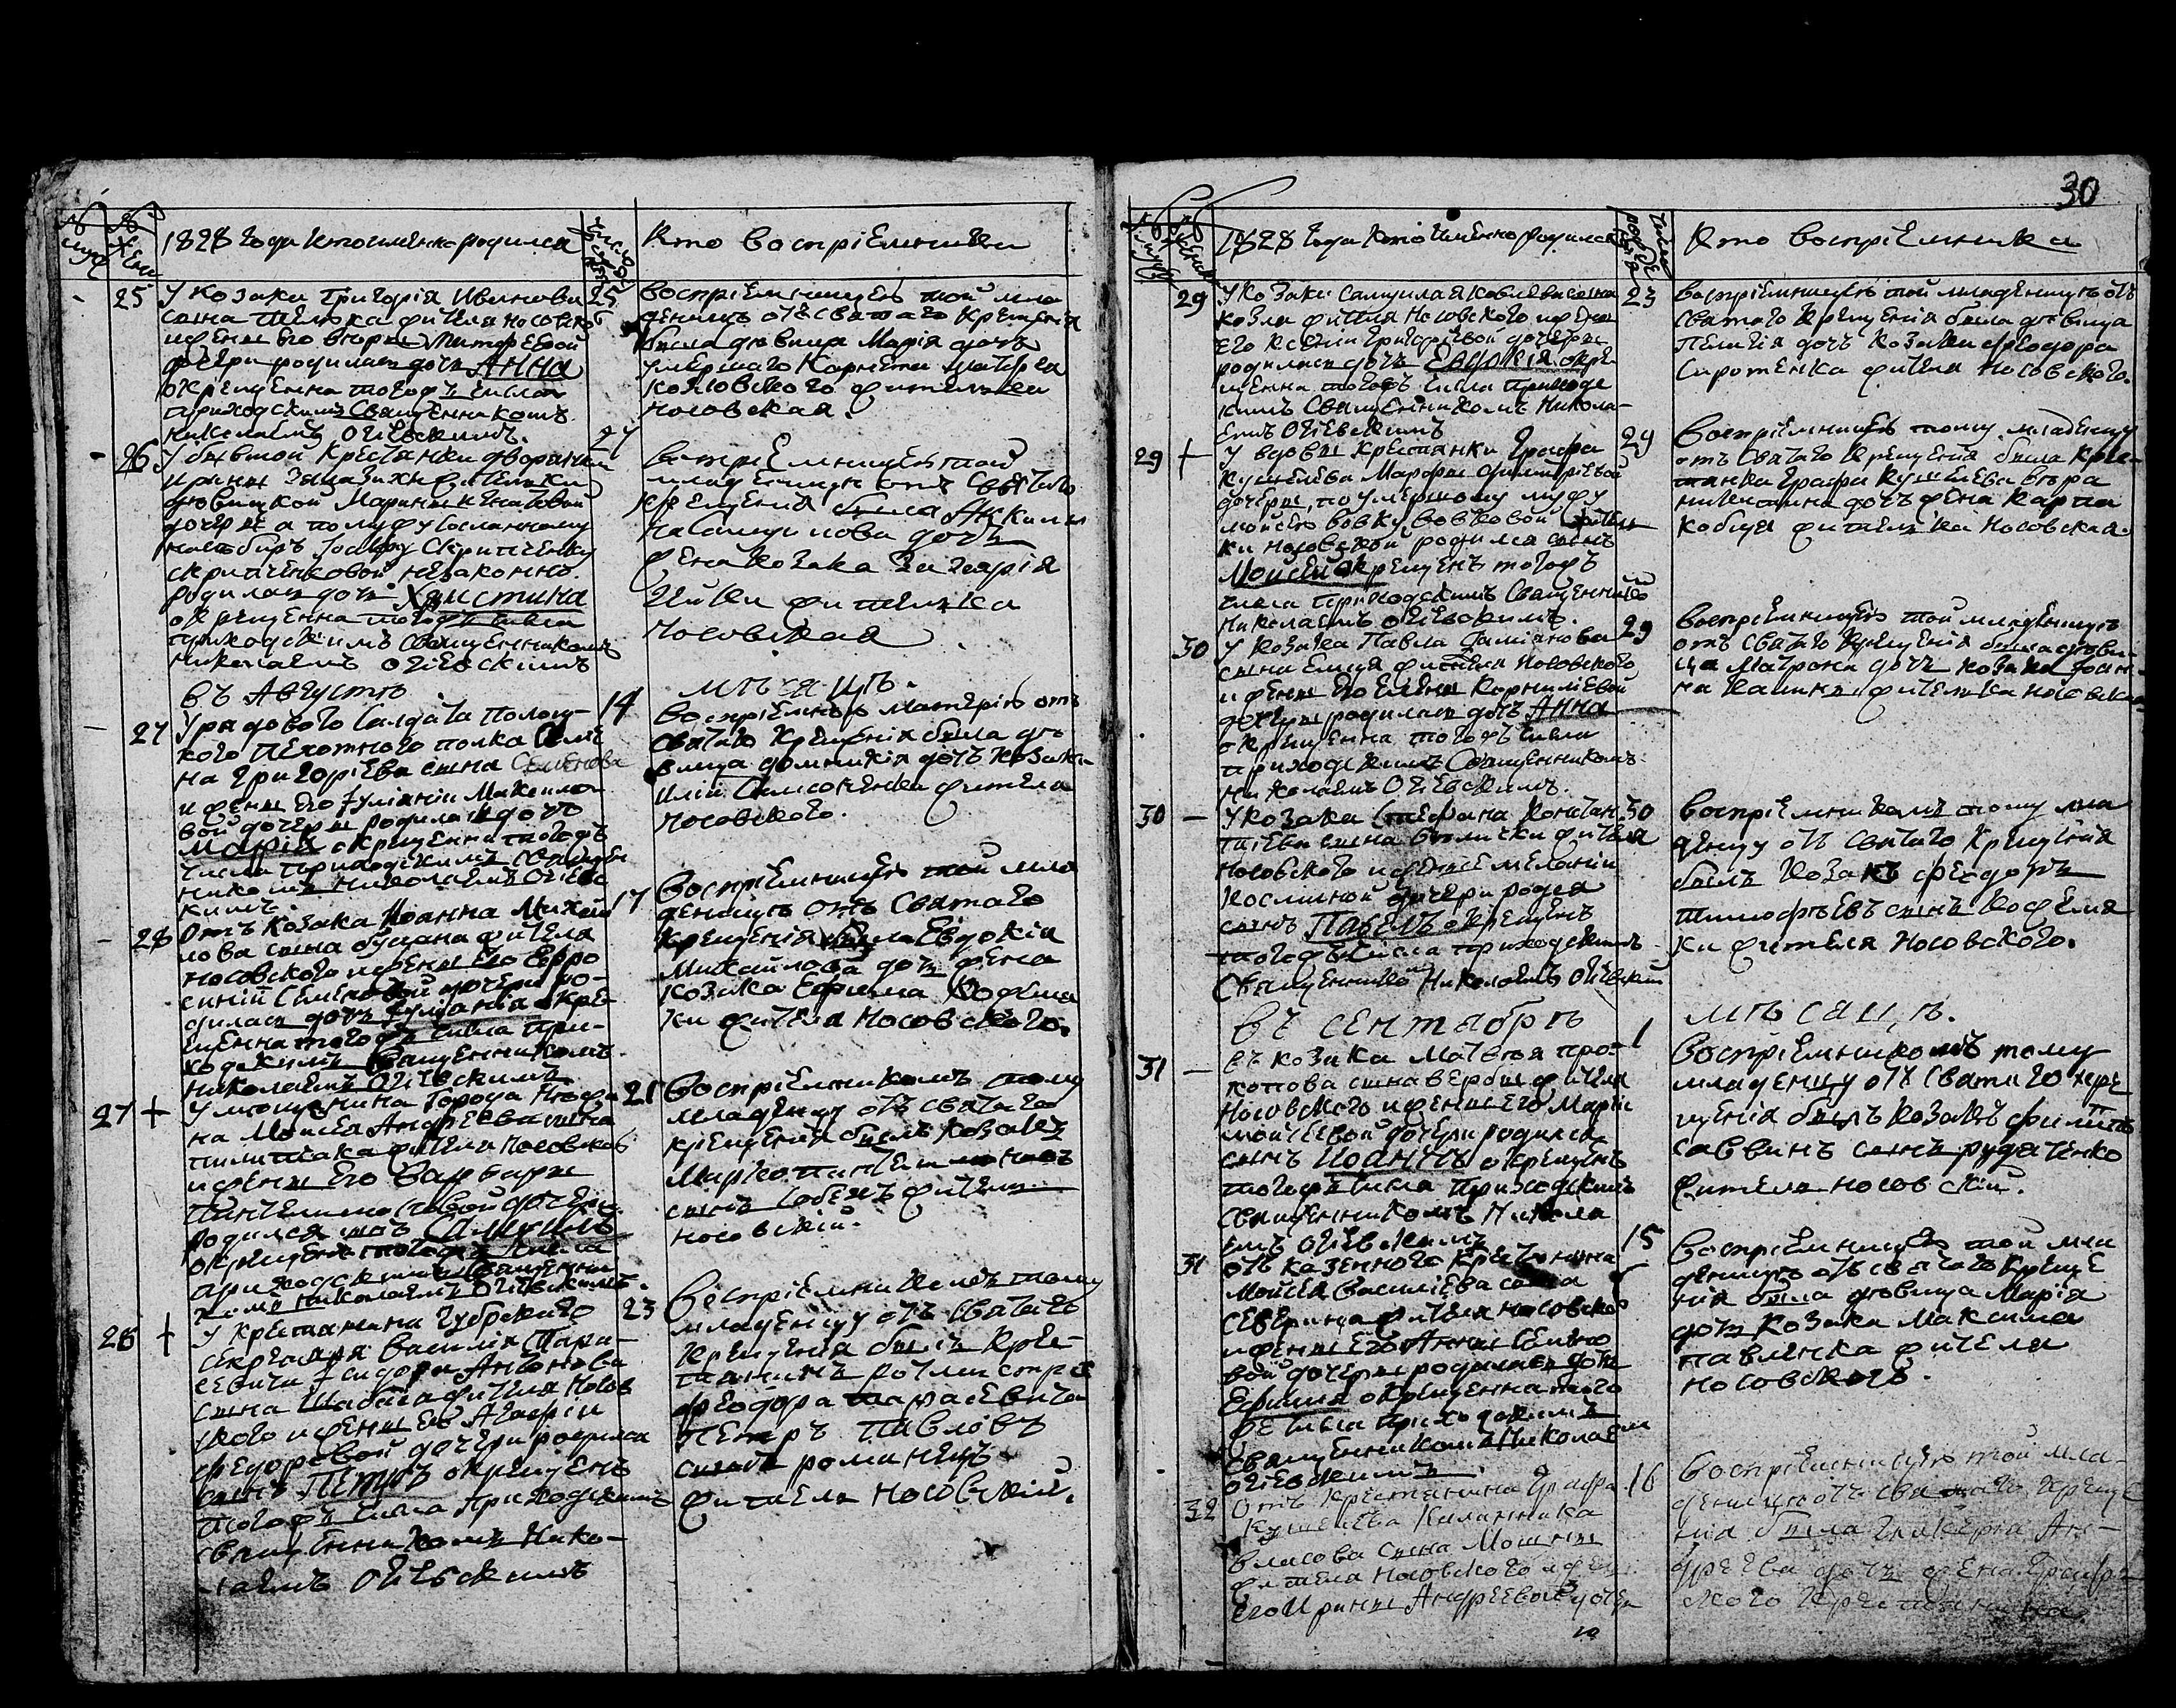 30
№ муж
№ жен
1828 года кто именно родился
число рожде
кто восприемники
25
У козака Григорія Иванова
сына жителя носовско
и жены его
дочери родилась дочь Анна
окрещенна тогожъ числа
приходскимъ Священникомъ
николаемъ Огіевскимъ.
25
Восприемницею той мла
деницы отъ Святаго крещенія
была девица Марія дочь
умершаго Корнета
козловского жителька
носовская.
26
У бывшой крестянки дворянки
дочери а по мужу
родилась дочь Христина
окрещенна тогожъ числа
приходскимъ Священникомъ
николаемъ огіевскимъ
27
восприемницею той
младеницы отъ Святаго
крещенія была
дочь
жена козака Захарія
жителька
носовская
въ Августе
месяце.
27
У рядового Салдата Полоц-
кого пехотного полка
на Григоріева сына Семенова
и жены его Іуліаніи Михайло
вой дочери родилась дочь
Марія окрещенна тогожъ
числа приходскимъ Священ
никомъ Николаемъ Огіевс
кимъ.
14
Святаго Крещенія была де
вица домникія дочь козака
жителя
носовского.
28
Отъ козака Іоанна Михай
лова сына жителя
носовского и жены его Евфро
синіи Семеновой дочери ро-
дилась дочь Іуліанія окре
щенна тогожъ числа при-
ходскимъ Священникомъ
николаемъ Огіевскимъ
17
Восприемницею той мла
деницы отъ Святаго
крещенія была Евдокія
Михайлова дочь жена
козака Ефима Кофана
ки жителя Носовского.
27 +
У мещанина города Нежи
на Моисея Андреева сына
жителя носовской
и жены его Варвары
Пантелимоновой дочери
родился сынъ Самуилъ
окрещенъ тогожъ числа
приходскимъ Священни
комъ николаемъ Огіевскимъ.
21
Восприемникомъ тому
младенцу отъ святаго
крещенія былъ козакъ
Марко пантелимоновъ
сынъ жителя
носовскій.
28 +
У крестянина Губрского
секретаря Василія Тара-
севича Ісидора Антонова
сына жителя Носов
ского и жены его Агафіи
федоровой дочери родился
сынъ Петръ окрещенъ
тогожъ числа приходскимъ
священникомъ Нико-
лаемъ Огіевскимъ
23
Восприемникомъ тому
младенцу отъ Святаго
Крещенія былъ кре-
стянинъ ротмистра
федора тарасевича
петръ павловъ
сынъ романецъ
житель носовскій.
№ муж
№ женск
1828 года кто именно родился
число рожде
нія
кто восприемника
29
У козака Самуила Яковлева сына
козла жителя Носовского и жены
его Ксеніи Григоріевой дочери
родилась дочь Евдокія окре
щенна тогожъ числа приходс
кимъ Священникомъ Никола-
емъ Огіевскимъ
23
Восприемницею той младеницы отъ
Святаго Крещенія была девица
Пелагія дочь козака феодора
Сиротенка жителя Носовского.
29 +
У вдовы крестянки Графа
Кушелева Марфы димитріевой
дочери, по умершому мужу
мойсею вовку вовковой житель
ки носовской родился сынъ
Мойсей окрещенъ тогожъ
числа приходскимъ Священникомъ
Николаемъ огіевскимъ.
24
Восприемницею тому младенцу
отъ Святаго Крещенія была крес-
тянка Графа Кушелева вера
никитина дочь жена Карпа
кобца жителька носовская.
30
У козака Павла Даміанова
сына емця жителя Носовского
и жены его Елены Корниліевой
дочери родилась дочь Анна
окрещенна тогожъ числа
приходскимъ Священникомъ
николаемъ Огіевскимъ.
29
Восприемницею той младеницы
отъ Святаго Крещенія была деви
ца Матрона дочь козака Іоан
на Калины жителька носовская
30 —
У козака Стефана Констан
тіева сына жителя
носовского и жены его Меланіи
Косминой дочери родился
сынъ Павелъ окрещенъ
тогожъ числа приходскимъ
Священникомъ Николаемъ Огіевским
30
Восприемникомъ тому мла
денцу отъ Святаго Крещенія
былъ козакъ феодоръ
тимофеевъ сынъ кофана
ки жителя Носовского.
въ сентябре
месяце.
31 —
въ козака Матвея про-
копова сына вербы жителя
Носовского и жены его Маріи
мойсеевой дочери родился
сынъ Иоаннъ окрещенъ
тогожъ числа приходскимъ
Священникомъ Никола
емъ Огіевскимъ
1
Восприемникомъ тому
младенцу отъ Святаго кре
щенія былъ козакъ филиппъ
саввинъ сынъ рудаченко
житель носовскій.
31
отъ казенного крестянина
Мойсея Василіева сына
северина жителя носовског
и жены его Анны Семено
вой дочери родилась дочь
Ефимія окрещенна того
же числа приходскимъ
священникомъ Николаем
огіевскимъ
15
восприемницею той мла
деницы отъ святаго креще
нія была девица Марія
дочь козака Максима
павленка жителя
носовского.
32
Отъ крестянина Графа
Кушелева Каллиника
Власова сына Мошны
жителя Носовского и жены
его Ирины Андреевой дочери
16
Восприемницею той мла-
деницы отъ святаго креще
нія была Гликерія Анд-
реева дочь жена Графс
кого крестянина